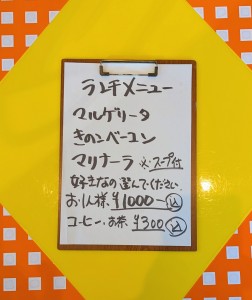 ランチメニュー
マルゲリータ
きのこベーコン
マリナーラ ※スープ付
好きなの選んでください。
お1人様 ¥1000〜 込
コーヒー、お茶 ¥300 込